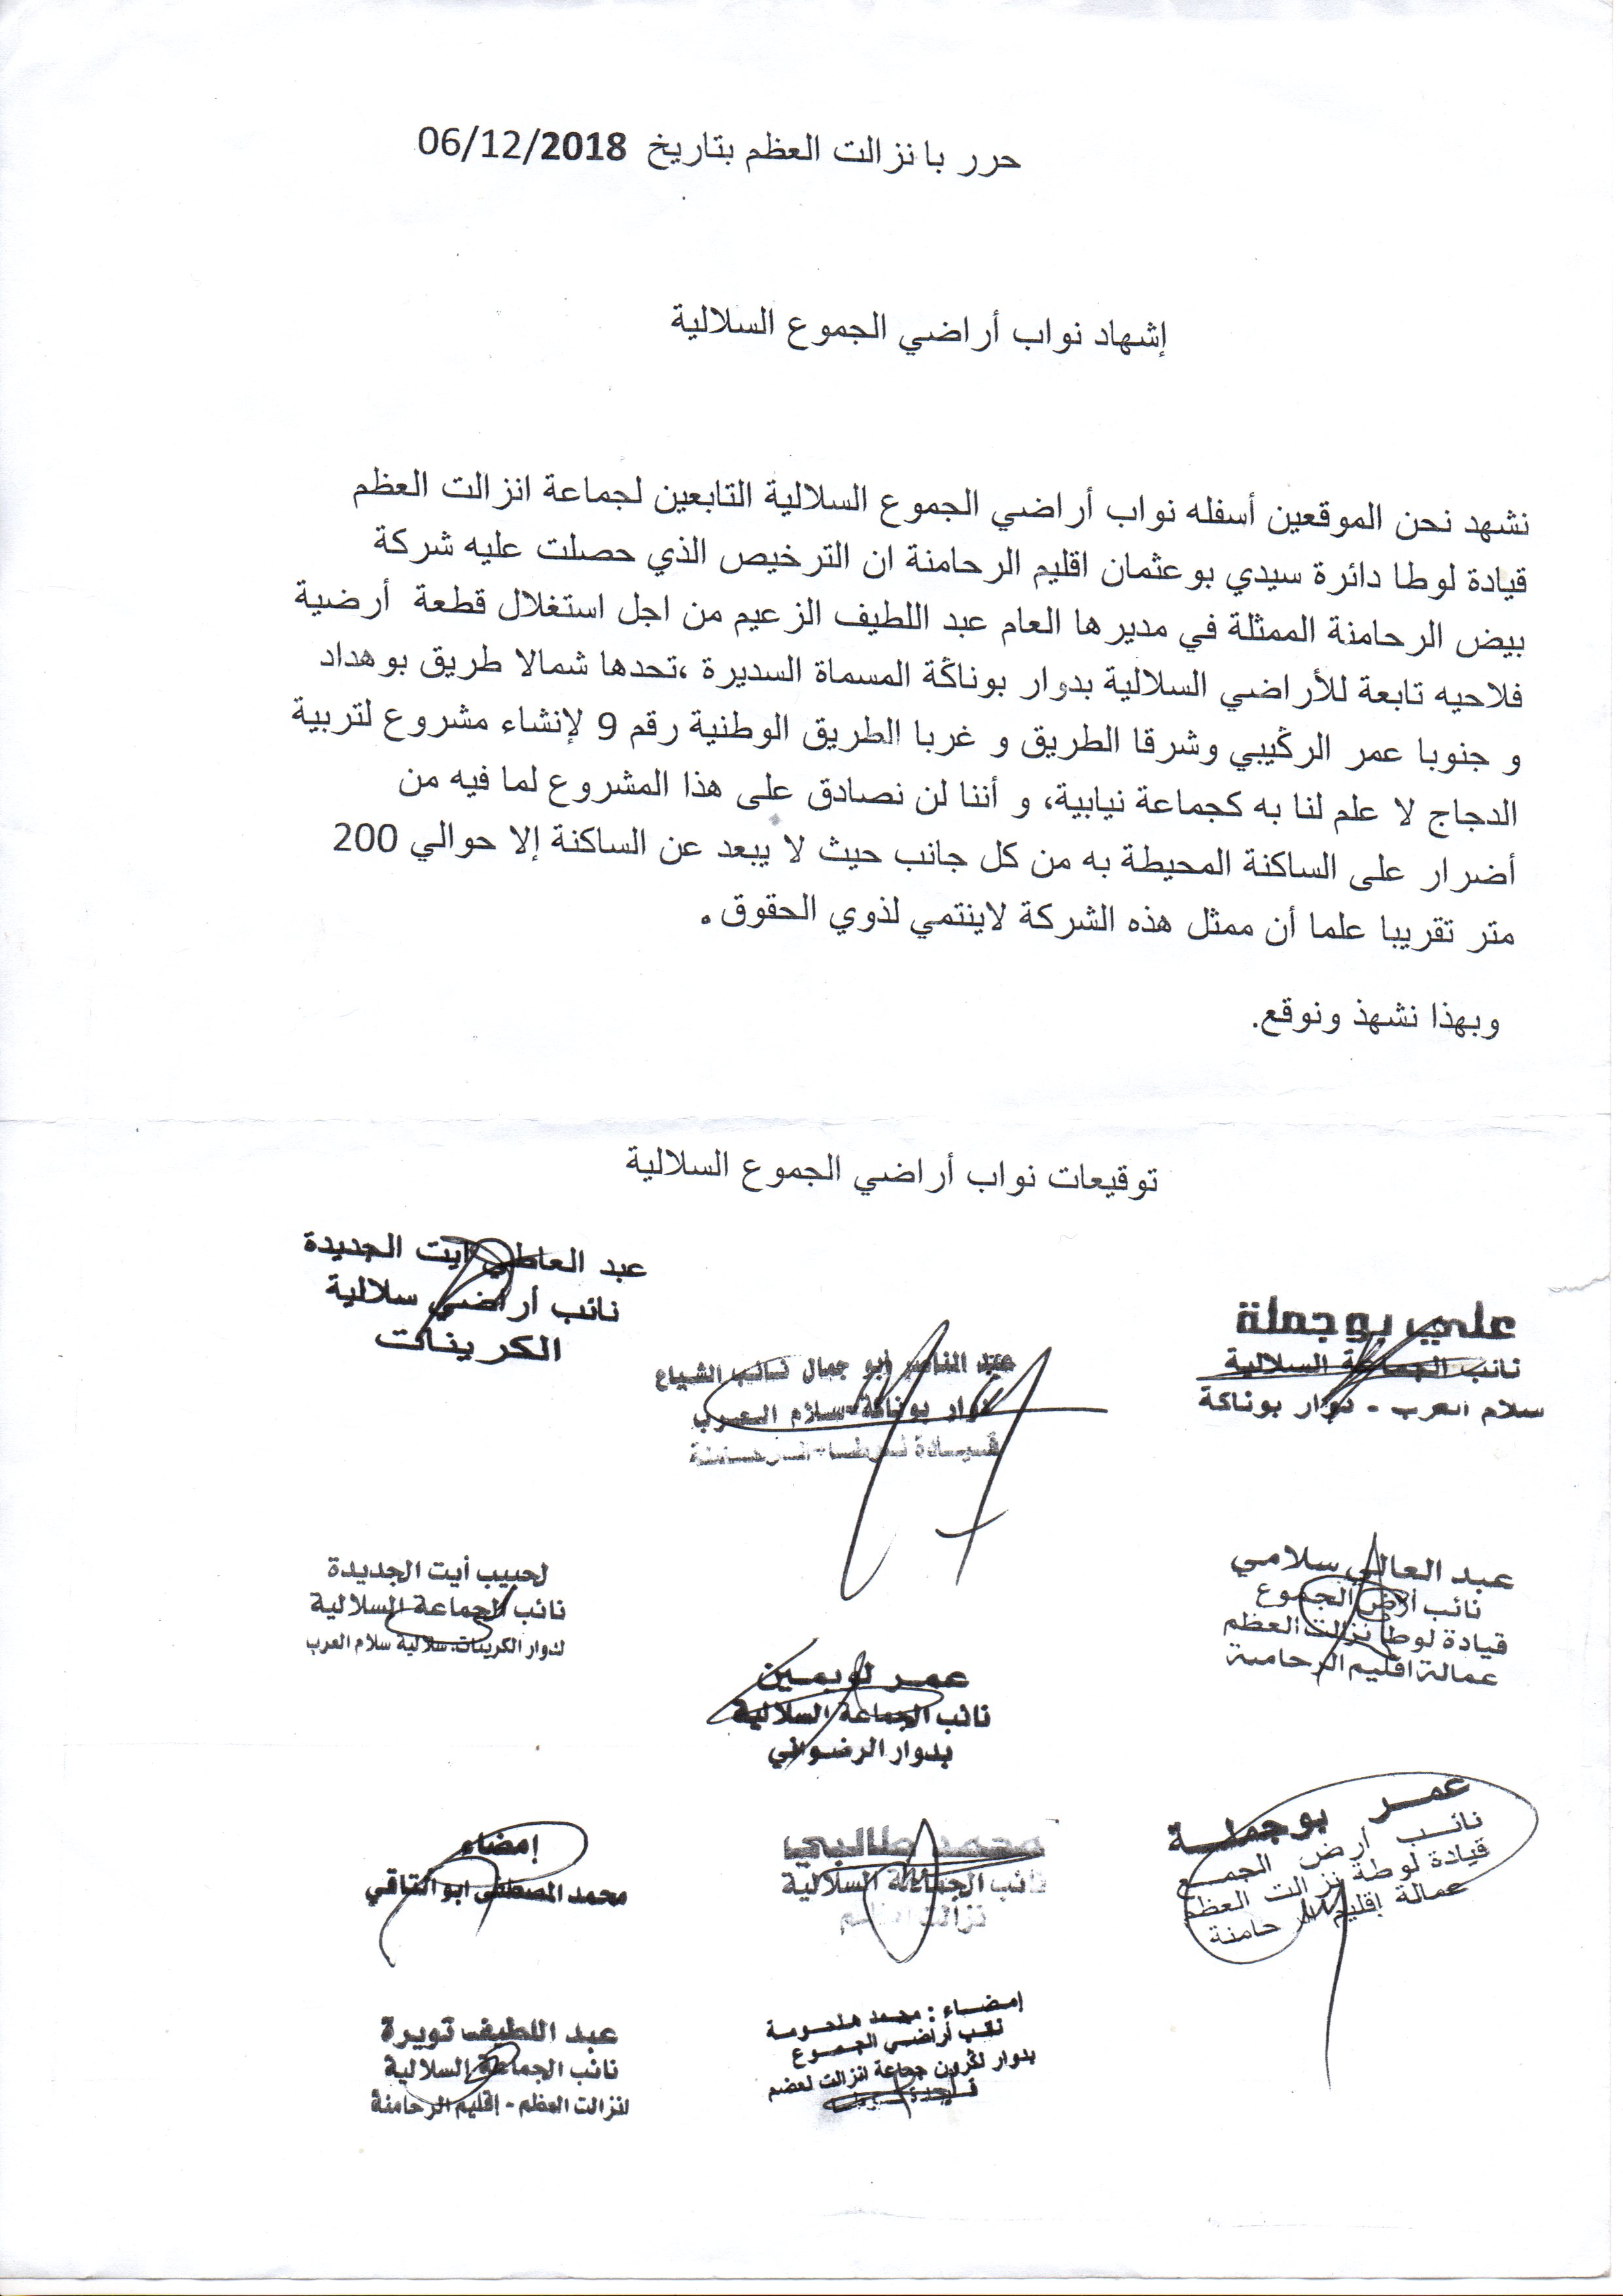 حرر با نزالت العظم بتاريخ 06/12/2018
إشهاد نواب أراضي الجموع السلالية
نشهد نحن الموقعين أسفله نواب أراضي الجموع السلالية التابعين لجماعة انزالت العظم
قيادة لوطا دائرة سيدي بوعثمان اقليم الرحامنة ان الترخيص الذي حصلت عليه شركة
بيض الرحامنة الممثلة في مديرها العام عبد اللطيف الزعيم من اجل استغلال قطعة أرضية
فلاحيه تابعة للأراضي السلالية بدوار بوناڭة المسماة السديرة ،تحدها شمالا طريق بوهداد
و جنوبا عمر الرڭيبي وشرقا الطريق و غربا الطريق الوطنية رقم 9 لإنشاء مشروع لتربية
الدجاج لا علم لنا به كجماعة نيابية، و أننا لن نصادق على هذا المشروع لما فيه من
أضرار على الساكنة المحيطة به من كل جانب حيث لا يبعد عن الساكنة إلا حوالي 200
متر تقريبا علما أن ممثل هذه الشركة لاينتمي لذوي الحقوق .
وبهذا نشهذ ونوقع.
توقيعات نواب أراضي الجموع السلالية
علي بوجملة
نائب الجماعة السلالية
سلام العرب - دوار بوناكة
عبد الناصر أبو جمال نائب الشياع
دوار بوناكة-سلام العرب
قيادة لوطا-الرحامنة
عبد العاطي ايت الجديدة
نائب أراضي سلالية
الكرينات
عبد العالي سلامي
نائب أرض الجموع
قيادة لوطا نزالت العظم
عمالة اقليم الرحامنة
عمر لويمين
نائب الجماعة السلالية
بدوار الرضواني
لحبيب أيت الجديدة
نائب الجماعة السلالية
لدوار الكرينات، سلالية سلام العرب
عمر بوجملة
نائب أرض الجمع
قيادة لوطة نزالت العظم
عمالة إقليم الرحامنة
محمد طالبي
نائب الجماعة السلالية
نزالت العظم
إمضاء
محمد المصطفى ابو
إمضاء : محمد ملحومة
نائب أراضي الجموع
بدوار لڭرون جماعة انزالت لعضم
عبد اللطيف نويرة
نائب الجماعة السلالية
لنزالت العظم - إقليم الرحامنة